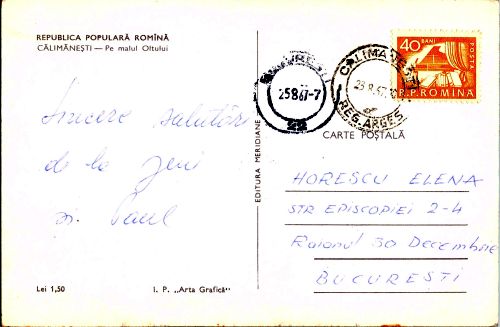 REPUBLICA POPULARĂ ROMÎNĂ
CĂLIMĂNEȘTI — Pe malul Oltului
Sincere salutări
de la Jeni
și Paul
Lei 1,50
I. P. „Arta Grafică"
EDITURA MERIDIANE
25867-7
22
CĂLIMĂNEȘTI
23.8.67
REG. ARGEȘ
40 BANI
POSTA
R.P. ROMINA
CARTE POȘTALĂ
HORESCU ELENA
STR EPISCOPIEI 2-4
Raionul 30 Decembrie
BUCUREȘTI